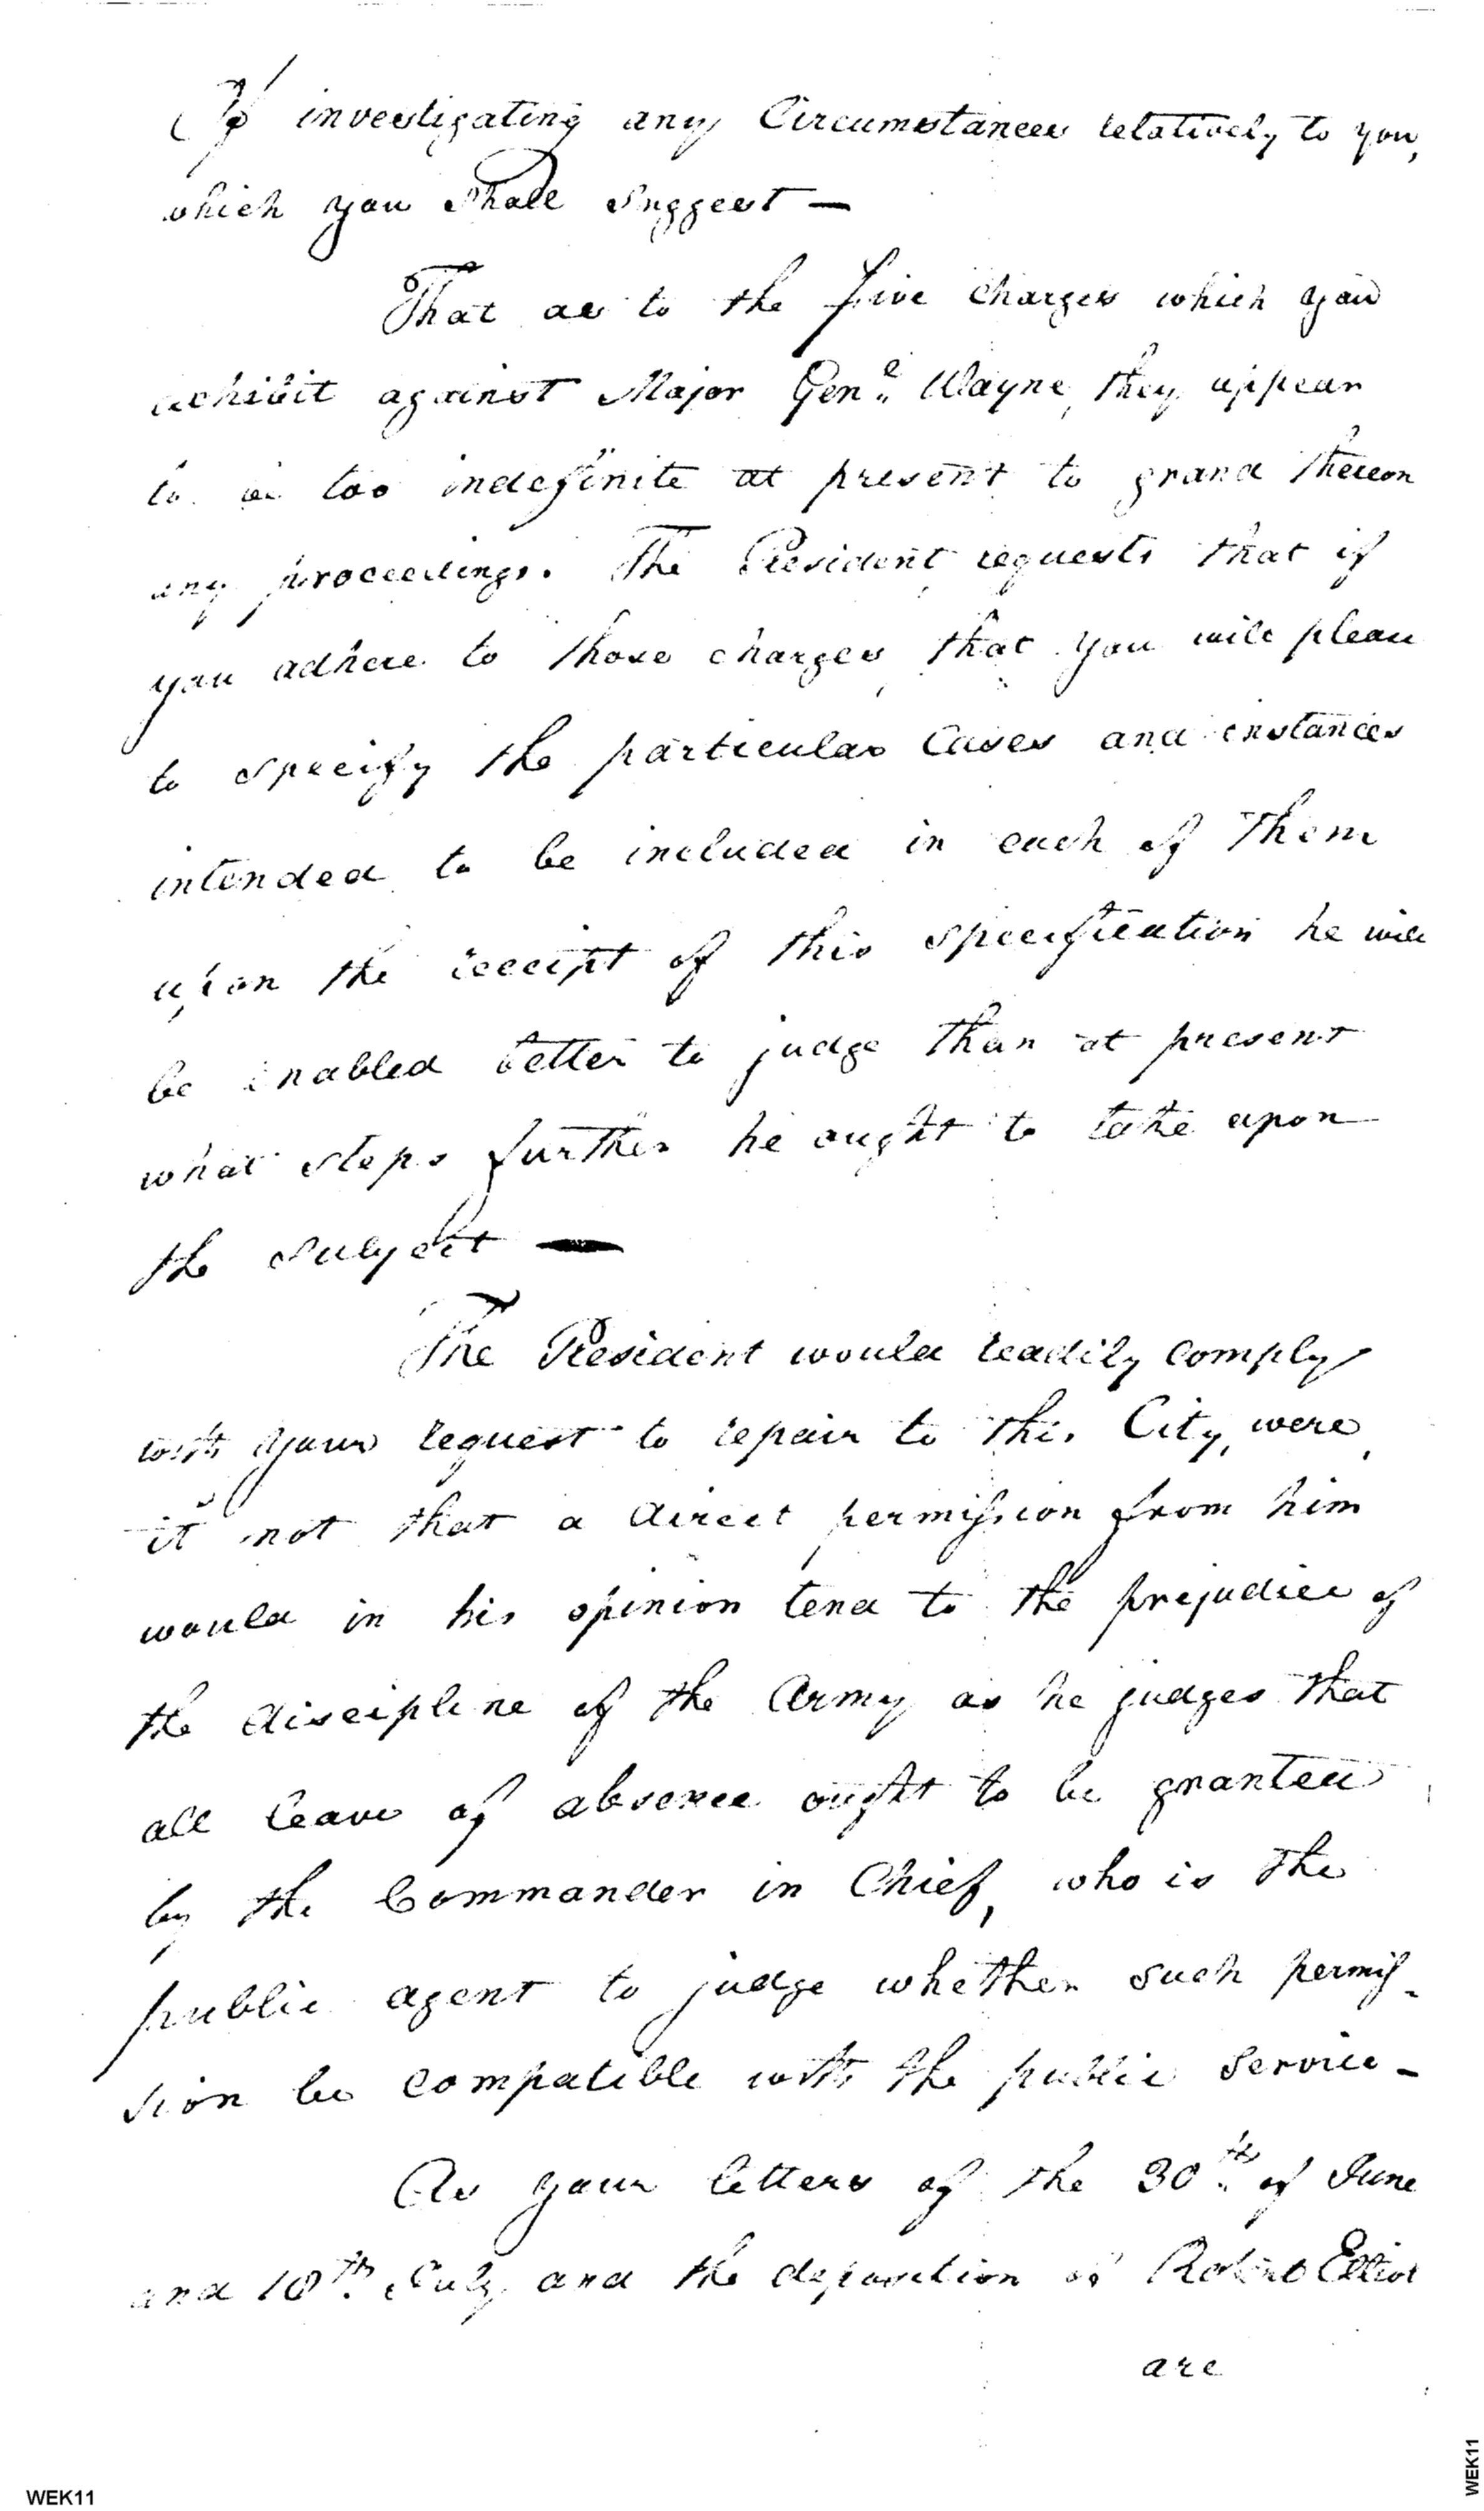 of investigating any Circumstances relatively to you,
which you shall suggest —
That as to the five charges which you
exhibit against Major Genl. Wayne, they appear
to be too indefinite at present to ground thereon
any proceedings. The President requests that if
you adhere to those charges, that you will please
to specify the particular Cases and instances
intended to be included in each of them
upon the receipt of this specification he will
be enabled better to judge than at present
what steps further he ought to take upon
the subject —
The President would readily comply
with your request to repair to this City, were
it not that a direct permission from him
would in his opinion tend to the prejudice of
the discipline of the Army as he judges that
all leave of absence ought to be granted
by the Commander in Chief, who is the
public agent to judge whether such permis-
sion be compatible with the public service -
As your letters of the 30th. of June
and 10th. July and the deposition of Robert Elliot
are
WEK11
WEK11